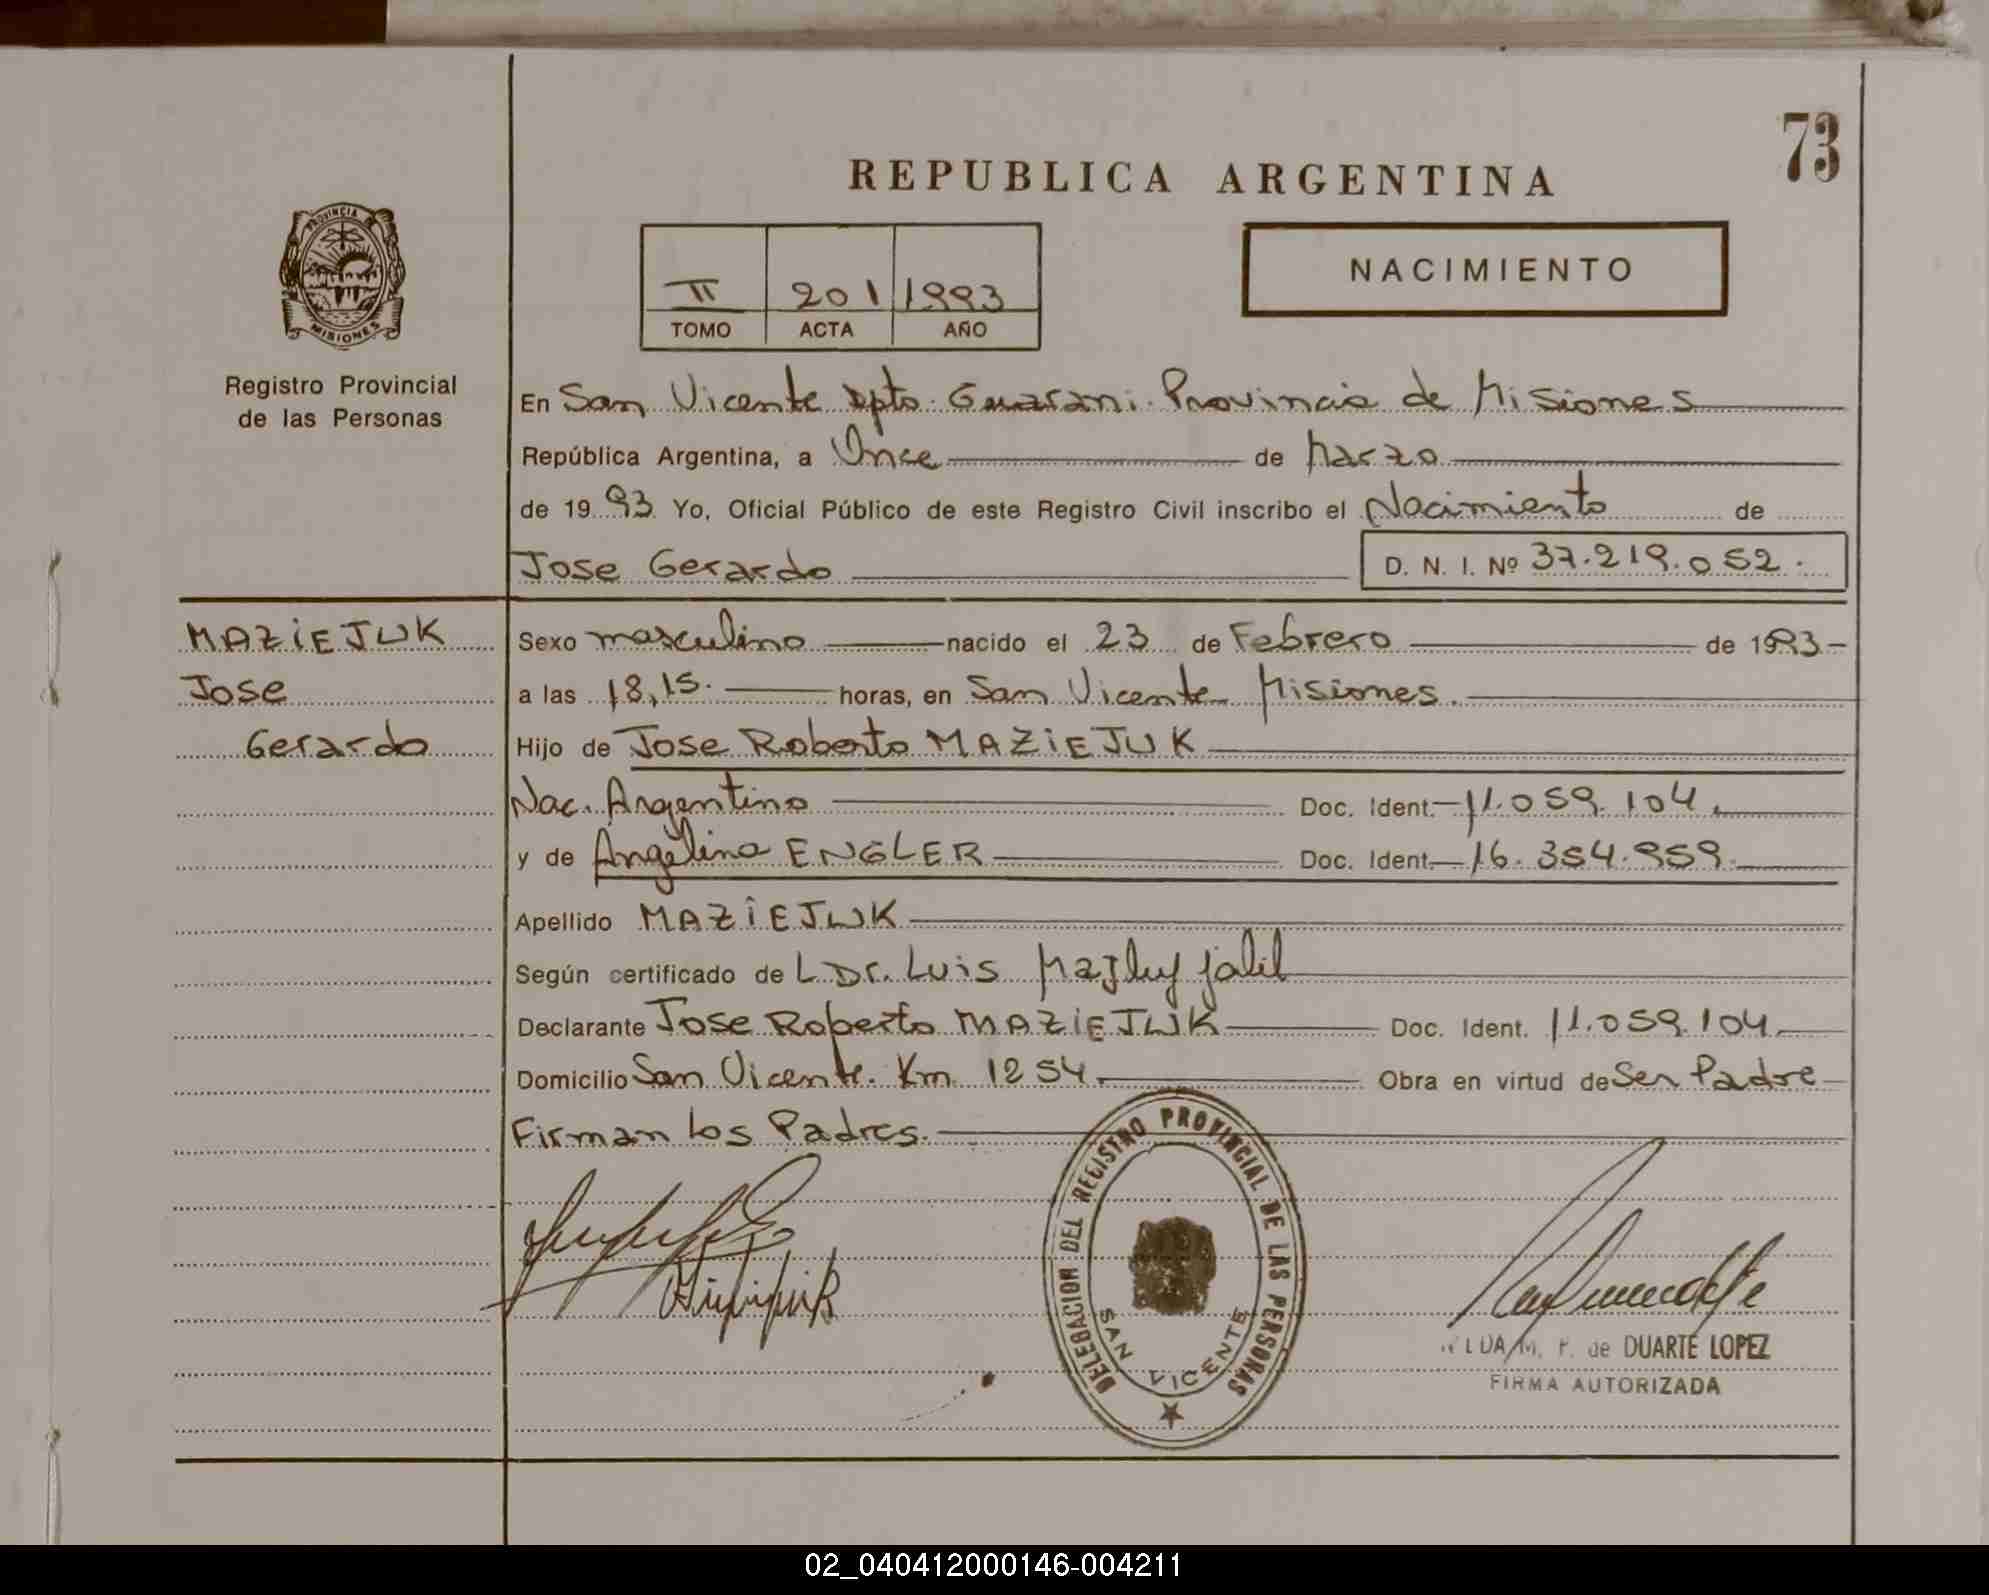 73
REPUBLICA ARGENTINA
NACIMIENTO
PROVINCIA DE
MISIONES
Registro Provincial
de las Personas
II 201 1993
TOMO ACTA AÑO
En San Vicente Dpto. Guarani. Provincia de Misiones
República Argentina, a Once de Marzo
de 1993 Yo, Oficial Público de este Registro Civil inscribo el Nacimiento de
Jose Gerardo D. N. I. Nº 37.219.052.
MAZIEJUK
Jose
Gerardo
Sexo masculino nacido el 23 de Febrero de 1993
a las 18,15. horas, en San Vicente Misiones.
Hijo de Jose Roberto MAZIEJUK
Nac. Argentino Doc. Ident. 11.059.104.
y de Angelina ENGLER Doc. Ident. 16.354.959.
Apellido MAZIEJUK
Según certificado de L Dr. Luis jalil
Declarante Jose Roberto MAZIEJUK Doc. Ident. 11.059.104.
Domicilio San Vicente. Km 1254. Obra en virtud de Ser Padre
Firman los Padres.
DELEGACION DEL REGISTRO PROVINCIAL DE LAS PERSONAS
SAN VICENTE
de DUARTE LOPEZ
FIRMA AUTORIZADA
02_040412000146-004211